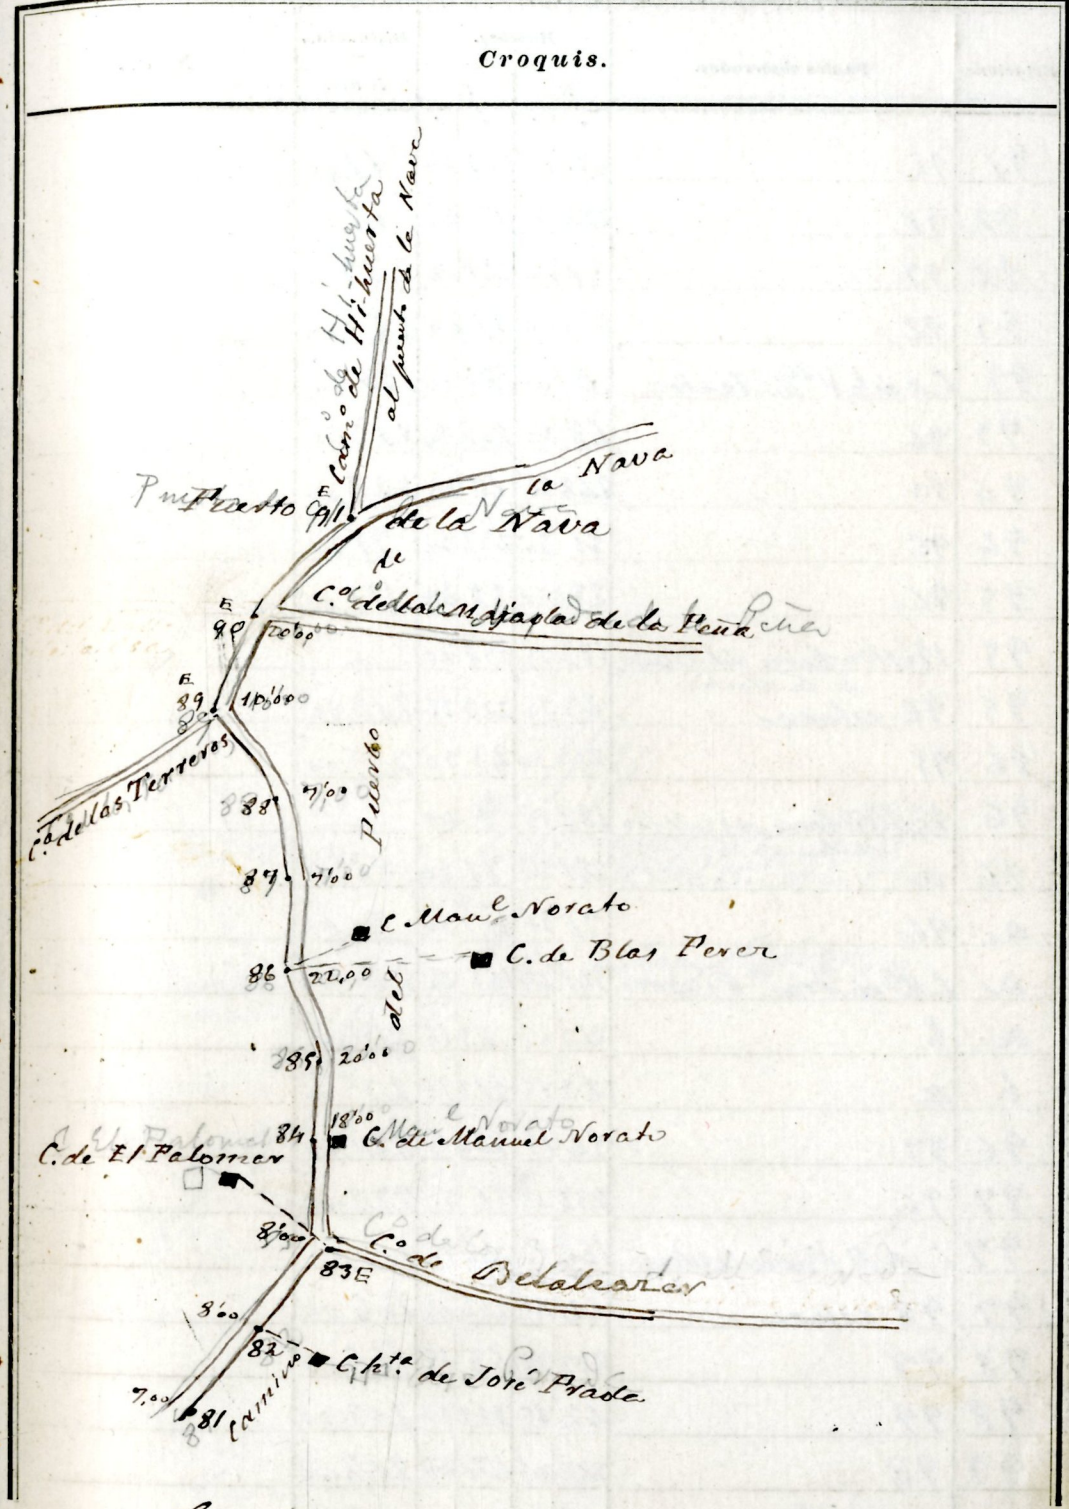 Croquis.
Cam.º de Hi-huerta
al puerto de la Nava
Puerto
E
91
de la Nava
la
Nava
de
C.º de la Majada de la Peña
E
90
20'00
E
89
10'00
C.º de las Terreros
88
7'00
Puerto
87
7'00
C Man.l Norato
86
22,00
C. de Blas Perer
del
85
20'00
84
18'00
C. de Manuel Norato
C. de El Palomar
8'00
83 E
C.º de Belalcarar
8'00
82
C. h.ta de José Prada
7,00
81
Camino